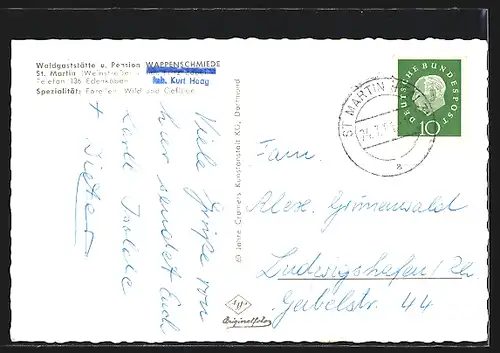 Waldgaststätte u. Pension WAPPENSCHMIEDE
St. Martin (Weinstraße)
Inh. Kurt Haag
Telefon 136 Edenkoben
Spezialität: Forellen, Wild und Geflügel
Viele Grüße von
hier sendet Euch
+ Dieter
60 Jahre Cramers Kunstanstalt KG, Dortmund
Agfa
Originalfoto
DEUTSCHE BUNDESPOST
10
ST MARTIN
a
Fam.
Alex. Grünenwald
Ludwigshafen / Rh
Gabelstr. 44